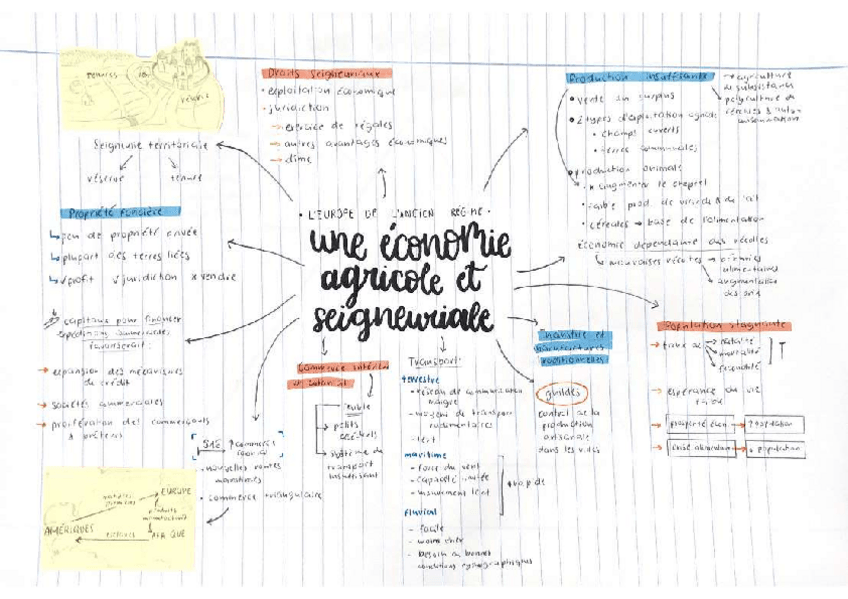 • L'EUROPE DE L'ANCIEN RÉGIME •
une économie
agricole et
seigneuriale
tenures
réserve
Seigneurie territoriale
réserve
tenure
Droits Seigneuriaux
• exploitation économique
• juridiction
→ exercice de régales
→ autres avantages économiques
→ dîme
Production insuffisante
→ agriculture
de subsistance
polyculture de
céréales
• vente du surplus
• 2 types d'exploitation agricole
• champs ouverts
• terres communales
• production animale
• céréales → base de l'alimentation
économie dépendante des récoltes
↳ mauvaises récoltes
alimentaires
augmentation
des prix
Propriété foncière
↳ peu de propriété privée
↳ plupart des terres liées
↳ profit juridiction × vendre
capitaux pour financer
expéditions commerciales
favorisent :
→ expansion des mécanismes
de crédit
→ sociétés commerciales
→ prolifération des commerçants
& prêteurs
commerce
• nouvelles routes
maritimes
• commerce triangulaire
EUROPE
AMÉRIQUES
AFRIQUE
matières
premières
produits
manufacturés
esclaves
Commerce intérieur
faible
→ petits
→ système de
transport
insuffisant
Transport:
terrestre
- réseau de communication
- moyens de transport
rudimentaires
- lent
maritime
- force du vent
- capacité limitée
- mouvement lent
fluvial
- facile
- moins cher
- besoin de bonnes
conditions
Industrie et
manufactures
traditionnelles
guildes
contrôle de la
production
artisanale
dans les villes
Population stagnante
→ taux de
natalité
mortalité
fécondité
→ espérance de vie
faible
→ prospérité écon. → ↑ population
→ crise alimentaire → ↓ population